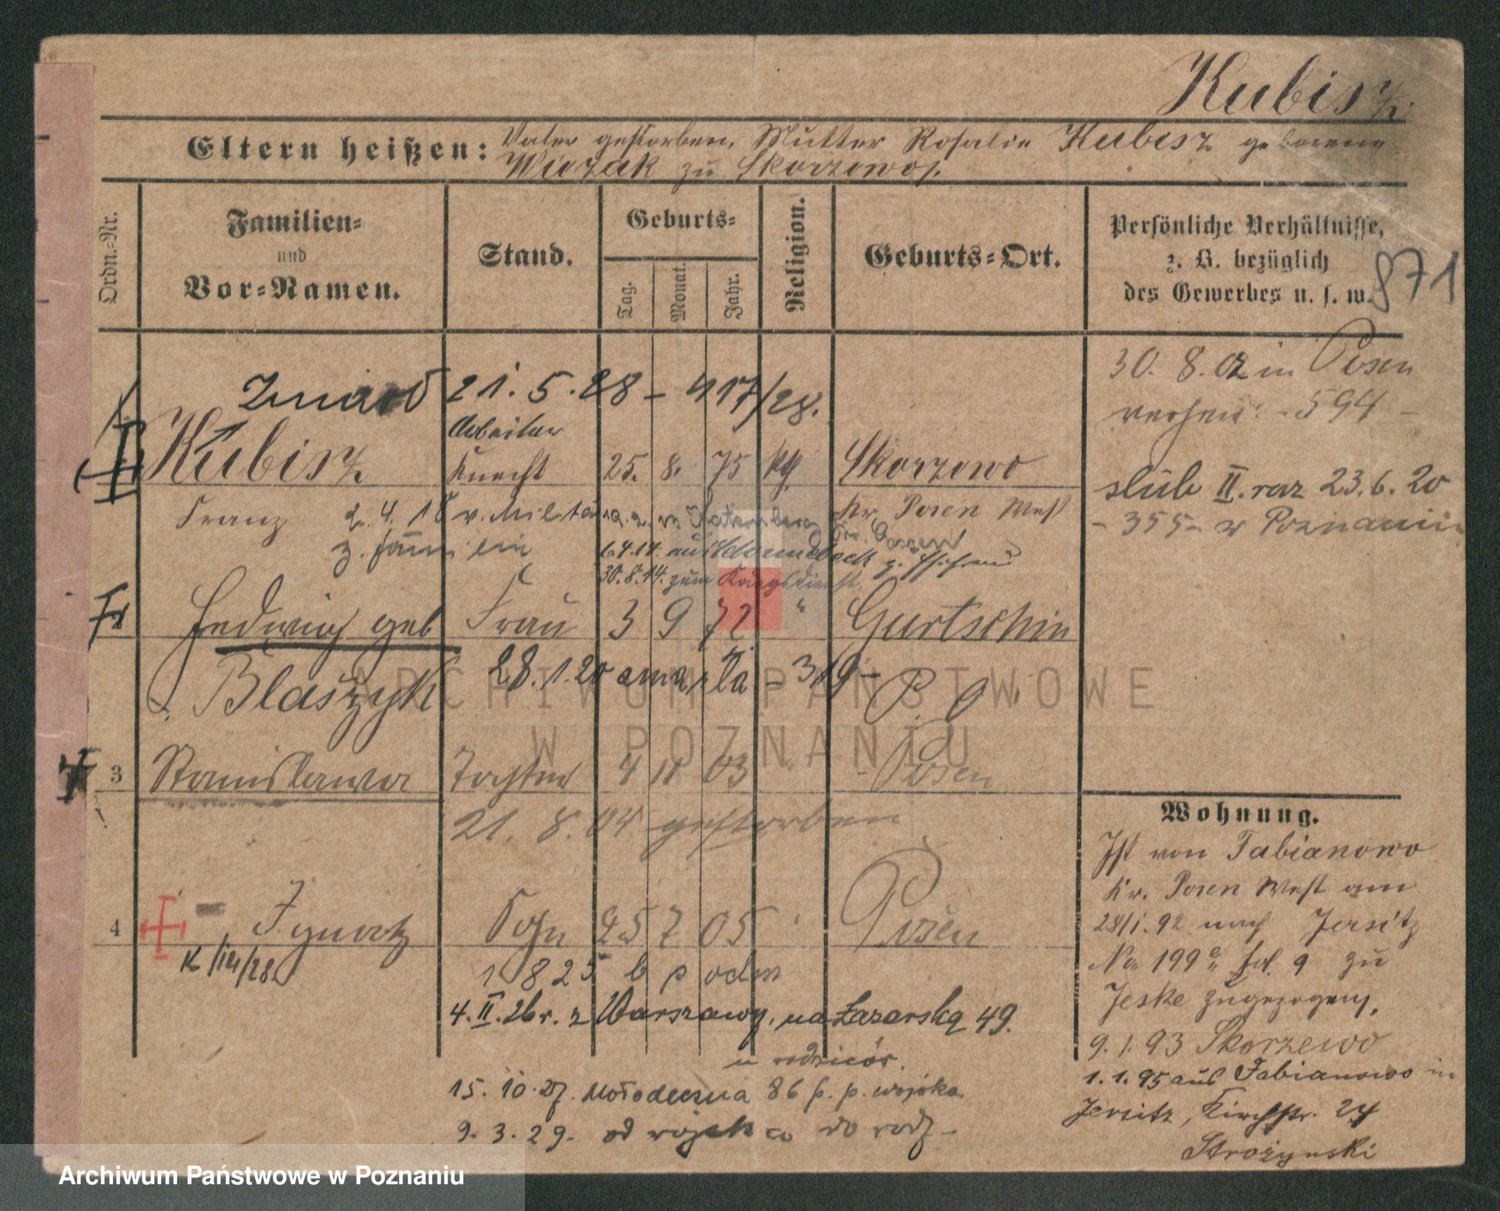 Kubisz
Eltern heißen: Vater gestorben, Mutter Rosalie Kubisz geborene
Wiozak zu Skorzewo
Ordn.-Nr.
Familien-
und
Vor-Namen.
Stand.
Geburts-
Tag. Monat. Jahr.
Religion.
Geburts-Ort.
Persönliche Verhältnisse,
z. B. bezüglich
des Gewerbes u. s. w.
871
30. 8. 02 in Posen
594
ślub II. raz 23.6.20
- 355 - w Poznaniu
Zmarł 21. 5. 28 - 417/28.
Arbeiter
Kubisz Knecht 25. 8. 75 kg. Skorzewo
Franz 2. 4. 18 v. Militär
Kr. Posen West
z. Familie
6.4.14. aus
30.8.14. zum Kriegsdienst
Hedwig geb Frau 3 9 72 " Gurtschin
Blaszyk 28.1.20 umarła - 319 - P. O.
3 Stanislawa Tochter 4 11 03 Posen
21. 8. 04 gestorben
4 Ignatz Sohn 25 7 05 Posen
K/14/28
1 8 25 b p odm
4. II. 26 r. z Warszawy, na Łazarską 49.
u rodziców.
15. 10. 27. Mołodeczna 86 p. p. wojska
9. 3. 29. od wojska do rodz-
Wohnung.
Ist von Fabianowo
Kr. Posen West am
28/1. 92 nach Jersitz
No 199 fol. 9 zu
Jeske zugezogen,
9. 1. 93 Skorzewo
1. 1. 95 aus Fabianowo in
Jersitz, Kirchstr. 24
Strożynski
ARCHIWUM PAŃSTWOWE
W POZNANIU
Archiwum Państwowe w Poznaniu